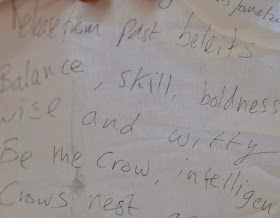 past beliefs
Balance, skill, boldness
wise and witty
Be the Crow, intelligen
Crows nest